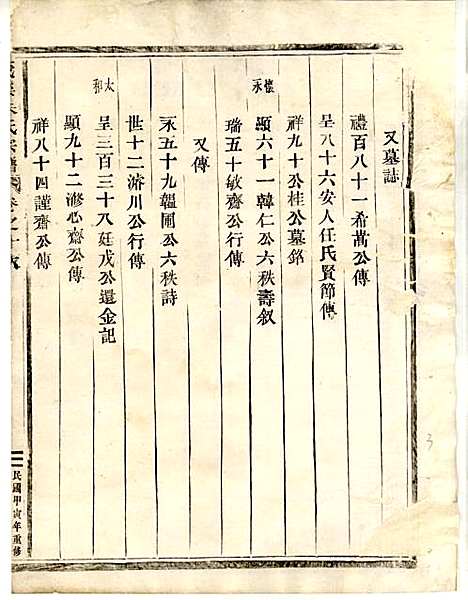 又墓誌
禮百八十一希萬公傳
呈八十六安人任氏賢節傳
祥九十公桂公墓銘
懷永
顯六十一韓仁公六秩壽叙
瑞五十敏齋公行傳
又傳
永五十九韞圃公六秩詩
世十二濬川公行傳
太和
呈三百三十八廷戍公還金記
顯九十二滌心齋公傳
祥八十四謹齋公傳
氏宗譜
民國甲寅年重修
3